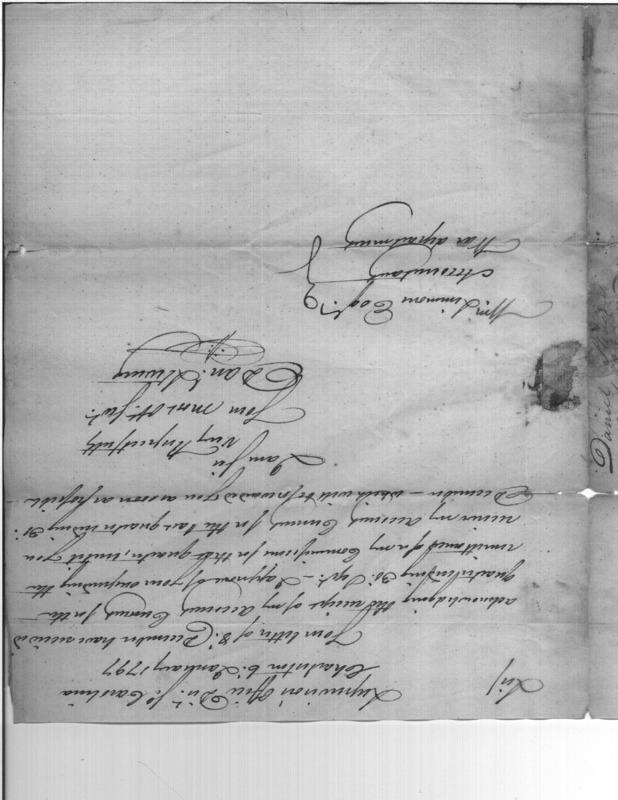 Supervisors Office Dist. So. Carolina
Charleston 6. January 1797
Sir/
Your letter of 8. December have received
acknowledging the receipt of my Account Current for the
quarter ending 30 Sept. – I approve of your suspending the
remittance of my Commissions for that quarter, until you
receive my Account Current for the last quarter ending 31.
December – which will be forwarded you as soon as possible.
I am Sir
Very Respectfully
Your most ob. Serv.
Dan. Stevens
Wm. Simmons Esqr.
Accountant
War department
Daniel